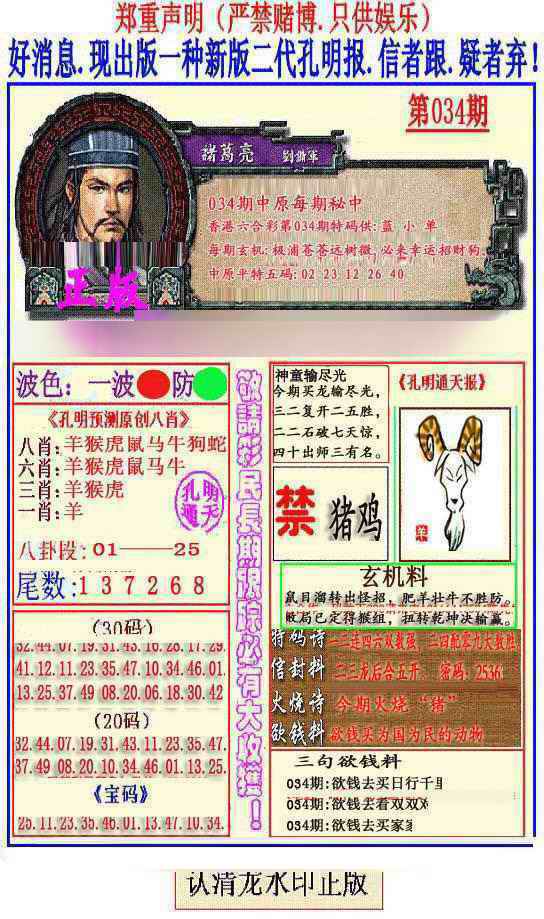 郑重声明（严禁赌博.只供娱乐）
好消息.现出版一种新版二代孔明报.信者跟.疑者弃！
第034期
諸葛亮 劉鐤軍
034期中原每期秘中
香港六合彩第034期特码供:蓝 小 单
每期玄机:极浦苍苍远树微,必来幸运招财狗.
中原平特五码:02 23 12 26 40
正版
波色：一波 防
《孔明预测原创八肖》
八肖:羊猴虎鼠马牛狗蛇
六肖:羊猴虎鼠马牛
三肖:羊猴虎
一肖:羊
孔明通天
八卦段:01——25
尾数:137268
(30码)
32.44.07.19.31.43.16.28.17.29.
41.12.11.23.35.47.10.34.46.01.
13.25.37.49.08.20.06.18.30.42
(20码)
32.44.07.19.31.43.11.23.35.47.
37.49.08.20.10.34.46.01.13.25.
《宝码》
25.11.23.35.46.01.13.47.10.34.
敬請彩民長期跟踪必有大收獲！
神童输尽光
今期买龙输尽光，
三二复开二五胜，
二二石破七天惊，
四十出师三有名。
《孔明通天报》
禁 猪鸡
羊
玄机料
鼠目溜转出怪招，肥羊壮牛不胜防。
败局已定得猴组，扭转乾坤决输赢。
特码诗 一二连四六双数强，三四配零九大数胜
信封料 二三龙后合五开， 密码：2536.
火烧诗 今期火烧“猪”
欲钱料 欲钱买为国为民的动物
三句欲钱料
034期:欲钱去买日行千里
034期:欲钱去看双双
034期:欲钱去买家
认清龙水印正版